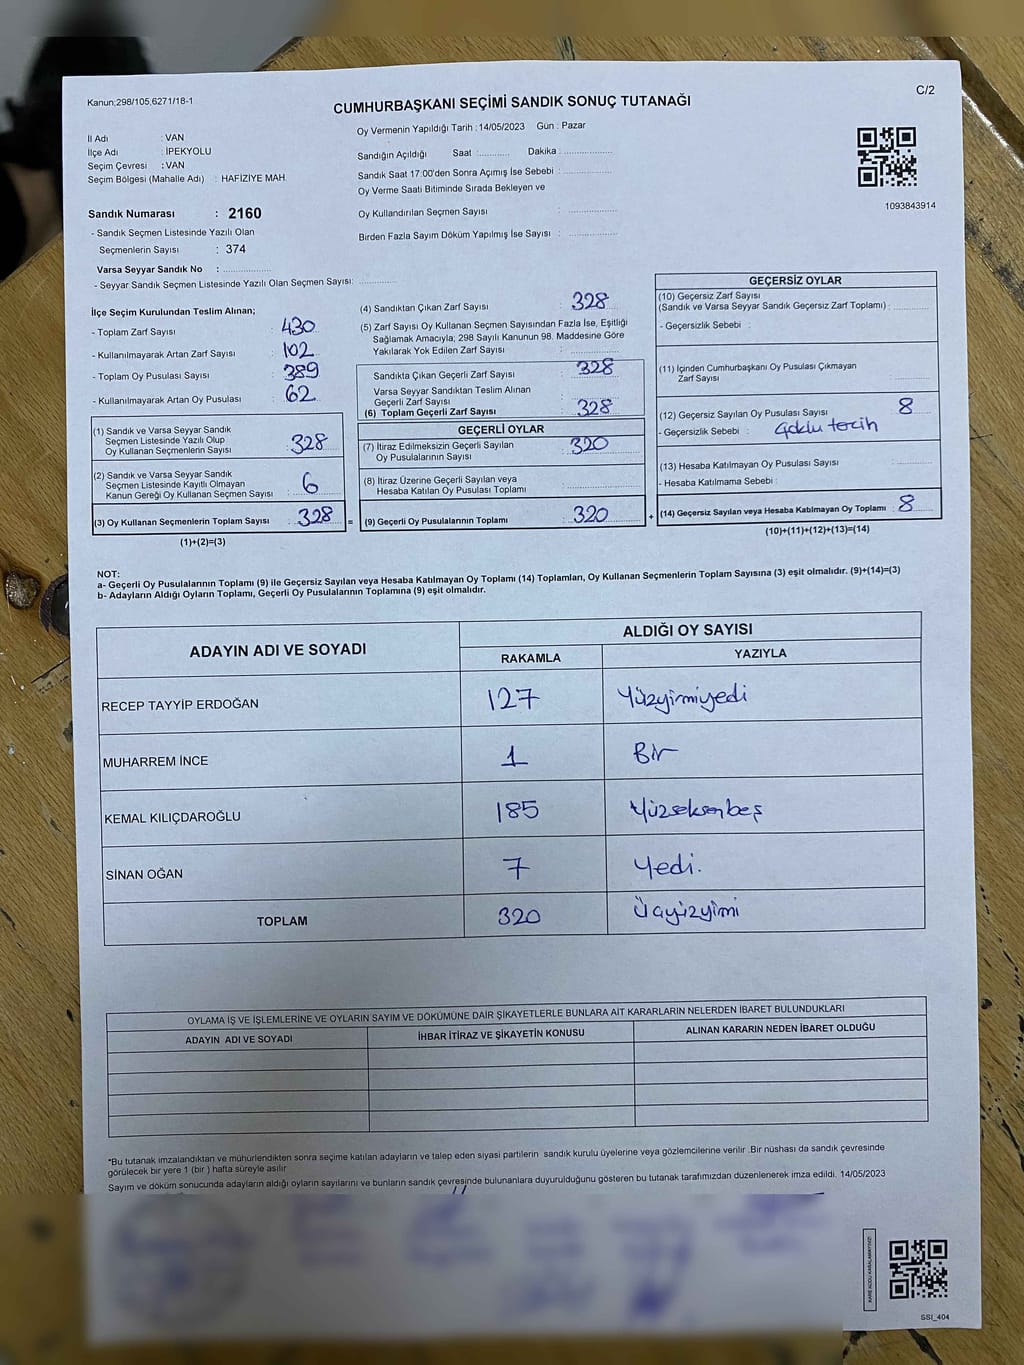 Kanun;298/105,6271/18-1
C/2
CUMHURBAŞKANI SEÇİMİ SANDIK SONUÇ TUTANAĞI
İl Adı : VAN
İlçe Adı : İPEKYOLU
Seçim Çevresi : VAN
Seçim Bölgesi (Mahalle Adı) : HAFİZİYE MAH.
Sandık Numarası : 2160
- Sandık Seçmen Listesinde Yazılı Olan
Seçmenlerin Sayısı : 374
Varsa Seyyar Sandık No : ..............
- Seyyar Sandık Seçmen Listesinde Yazılı Olan Seçmen Sayısı: ..............
Oy Vermenin Yapıldığı Tarih : 14/05/2023 Gün : Pazar
Sandığın Açıldığı Saat :.......... Dakika :..............
Sandık Saat 17:00'den Sonra Açımış İse Sebebi :..............
Oy Verme Saati Bitiminde Sırada Bekleyen ve
Oy Kullandırılan Seçmen Sayısı : ..............
Birden Fazla Sayım Döküm Yapılmış İse Sayısı : ..............
1093843914
İlçe Seçim Kurulundan Teslim Alınan;
- Toplam Zarf Sayısı : 430
- Kullanılmayarak Artan Zarf Sayısı : 102
- Toplam Oy Pusulası Sayısı : 389
- Kullanılmayarak Artan Oy Pusulası : 62
(1) Sandık ve Varsa Seyyar Sandık
Seçmen Listesinde Yazılı Olup
Oy Kullanan Seçmenlerin Sayısı : 328
(2) Sandık ve Varsa Seyyar Sandık
Seçmen Listesinde Kayıtlı Olmayan
Kanun Gereği Oy Kullanan Seçmen Sayısı : 6
(3) Oy Kullanan Seçmenlerin Toplam Sayısı : 328
(1)+(2)=(3)
(4) Sandıktan Çıkan Zarf Sayısı : 328
(5) Zarf Sayısı Oy Kullanan Seçmen Sayısından Fazla İse, Eşitliği
Sağlamak Amacıyla; 298 Sayılı Kanunun 98. Maddesine Göre
Yakılarak Yok Edilen Zarf Sayısı : ..............
Sandıkta Çıkan Geçerli Zarf Sayısı : 328
Varsa Seyyar Sandıktan Teslim Alınan
Geçerli Zarf Sayısı : ..............
(6) Toplam Geçerli Zarf Sayısı : 328
GEÇERLİ OYLAR
(7) İtiraz Edilmeksizin Geçerli Sayılan
Oy Pusulalarının Sayısı : 320
(8) İtiraz Üzerine Geçerli Sayılan veya
Hesaba Katılan Oy Pusulası Toplamı : ..............
= (9) Geçerli Oy Pusulalarının Toplamı : 320
GEÇERSİZ OYLAR
(10) Geçersiz Zarf Sayısı
(Sandık ve Varsa Seyyar Sandık Geçersiz Zarf Toplamı) : ..........
- Geçersizlik Sebebi :
(11) İçinden Cumhurbaşkanı Oy Pusulası Çıkmayan
Zarf Sayısı : ..........
(12) Geçersiz Sayılan Oy Pusulası Sayısı : 8
- Geçersizlik Sebebi : çoklu tercih
(13) Hesaba Katılmayan Oy Pusulası Sayısı : ..........
- Hesaba Katılmama Sebebi :
+ (14) Geçersiz Sayılan veya Hesaba Katılmayan Oy Toplamı : 8
(10)+(11)+(12)+(13)=(14)
NOT:
a- Geçerli Oy Pusulalarının Toplamı (9) ile Geçersiz Sayılan veya Hesaba Katılmayan Oy Toplamı (14) Toplamları, Oy Kullanan Seçmenlerin Toplam Sayısına (3) eşit olmalıdır. (9)+(14)=(3)
b- Adayların Aldığı Oyların Toplamı, Geçerli Oy Pusulalarının Toplamına (9) eşit olmalıdır.
ADAYIN ADI VE SOYADI
ALDIĞI OY SAYISI
RAKAMLA YAZIYLA
RECEP TAYYİP ERDOĞAN 127 Yüzyirmiyedi
MUHARREM İNCE 1 Bir
KEMAL KILIÇDAROĞLU 185 Yüzseksenbeş
SİNAN OĞAN 7 Yedi.
TOPLAM 320 Üçyüzyirmi
OYLAMA İŞ VE İŞLEMLERİNE VE OYLARIN SAYIM VE DÖKÜMÜNE DAİR ŞİKAYETLERLE BUNLARA AİT KARARLARIN NELERDEN İBARET BULUNDUKLARI
ADAYIN ADI VE SOYADI İHBAR İTİRAZ VE ŞİKAYETİN KONUSU ALINAN KARARIN NEDEN İBARET OLDUĞU
*Bu tutanak imzalandıktan ve mühürlendikten sonra seçime katılan adayların ve talep eden siyasi partilerin sandık kurulu üyelerine veya gözlemcilerine verilir .Bir nüshası da sandık çevresinde
görülecek bir yere 1 (bir ) hafta süreyle asılır
Sayım ve döküm sonucunda adayların aldığı oyların sayılarını ve bunların sandık çevresinde bulunanlara duyurulduğunu gösteren bu tutanak tarafımızdan düzenlenerek imza edildi. 14/05/2023
KARE KODU KARALAMAYINIZ!
SSI_404